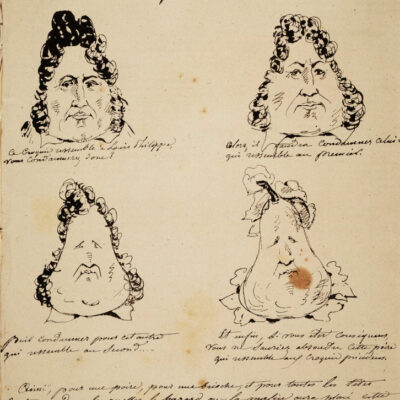 Ce croquis ressemble à Louis Philippe,
vous condamnerez donc?
Alors il faudra condamner celui-ci
qui ressemble au premier.
Puis condamner pour cet autre
qui ressemble au second...
Et enfin, si vous êtes conséquens,
vous ne sauriez absoudre cette poire
qui ressemble aux croquis précédens.
Ainsi, pour une poire, pour une brioche, et pour toutes les têtes
le hazard ou la malice aura placé cette